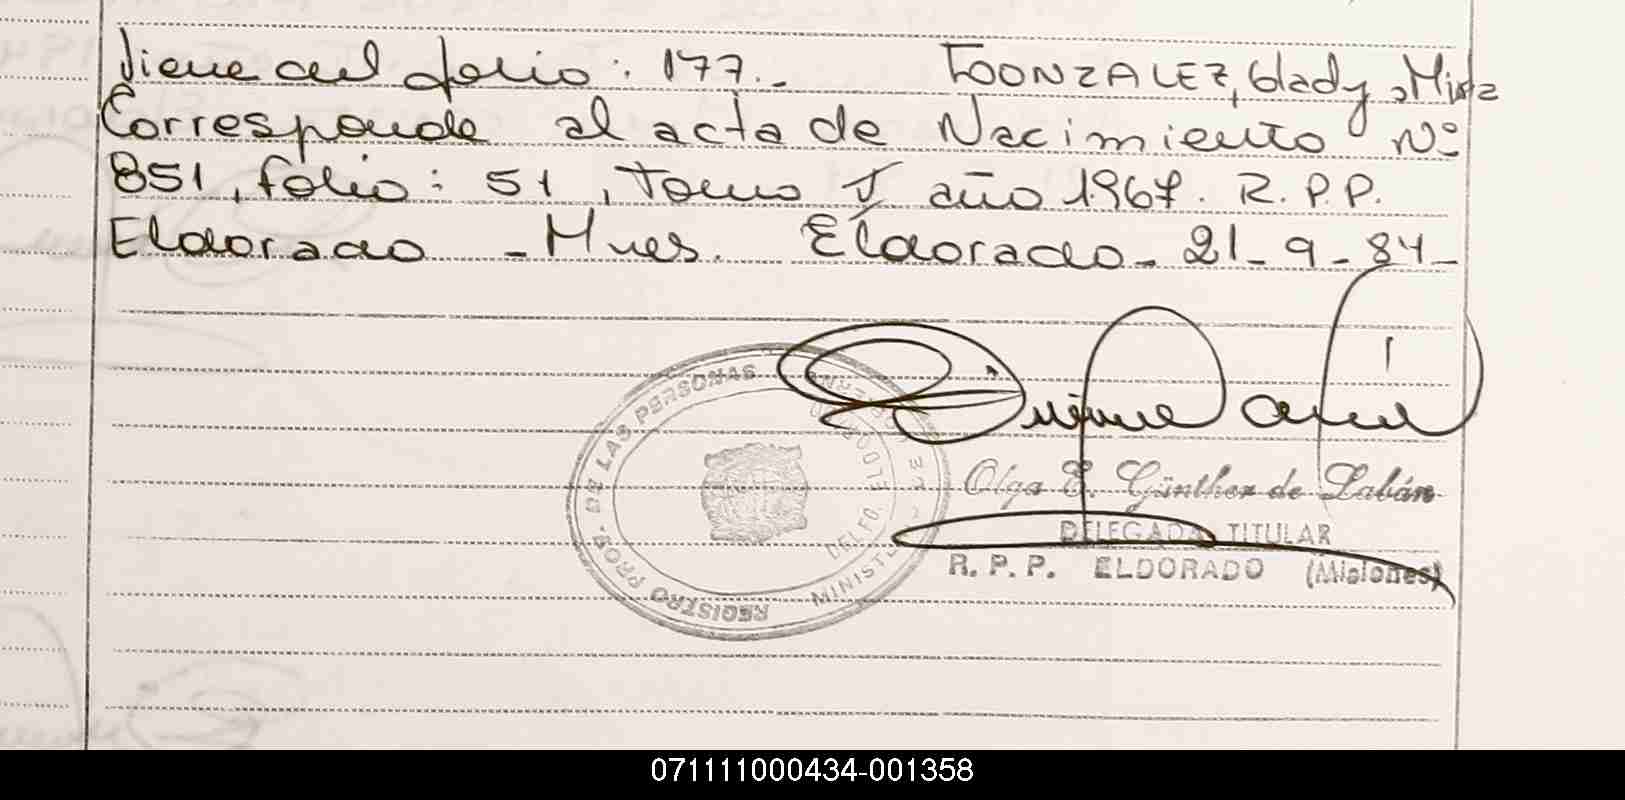 Viene del folio: 177.- GONZALEZ, Glady, Mirta
Corresponde al acta de Nacimiento Nº
851, folio: 51, Tomo I año 1967. R.P.P.
Eldorado - Mnes. Eldorado - 21 - 9 - 84 -
REGISTRO PROV. DE LAS PERSONAS
MINISTERIO DE GOBIERNO
ELDORADO
Olga E. Günther de Labán
DELEGADA TITULAR
R. P. P. ELDORADO (Misiones)
071111000434-001358